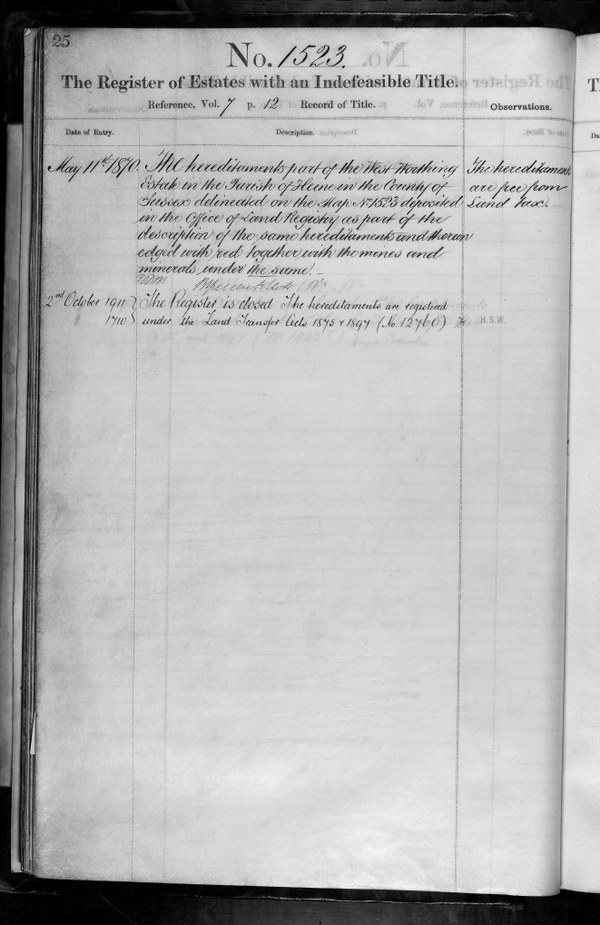 25
No. 1523.
The Register of Estates with an Indefeasible Title.
Reference, Vol. 7 p. 12 Record of Title.
Observations.
Date of Entry.
Description.
May 11th 1870.
The hereditaments part of the West Worthing
Estate in the Parish of Heene in the County of
Sussex delineated on the Map No 1523 deposited
in the Office of Land Registry as part of the
description of the same hereditaments and thereon
edged with red together with the mines and
minerals under the same. _
The hereditaments
are free from
Land Tax.
2nd October 1911
1710
The Register is closed The hereditaments are registered
under the Land Transfer Acts 1875 & 1897 (No. 12760)
H.S.W.